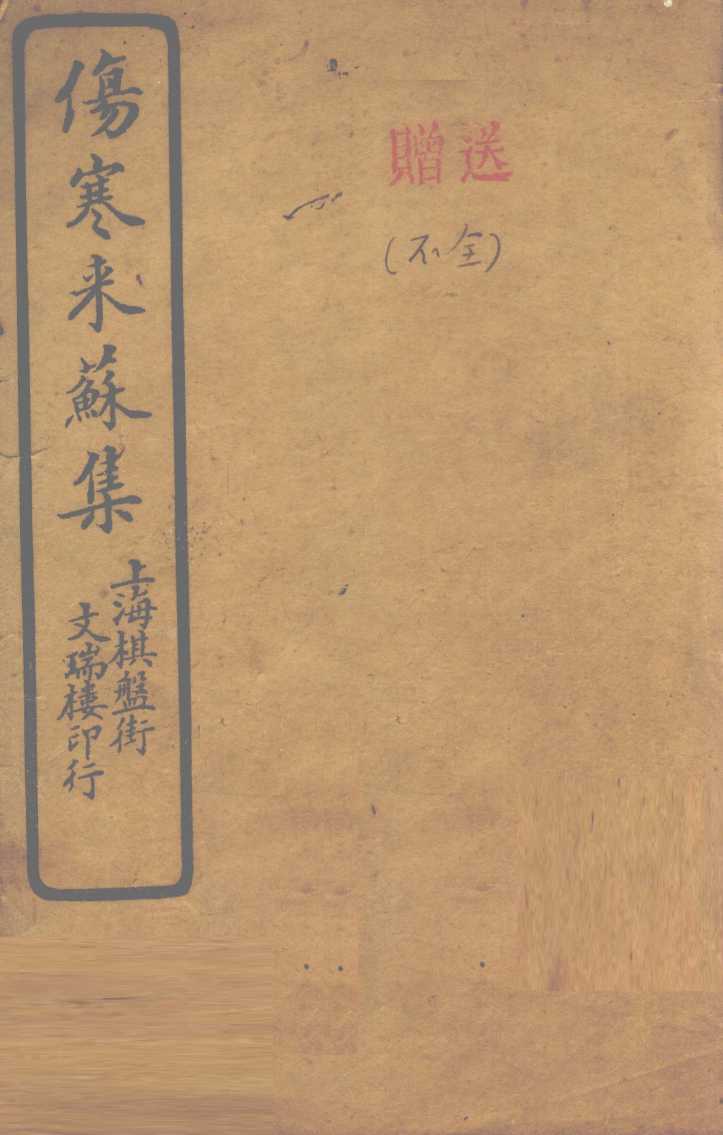 傷寒来蘇集
上海棋盤街
文瑞楼印行
贈送
(不全)